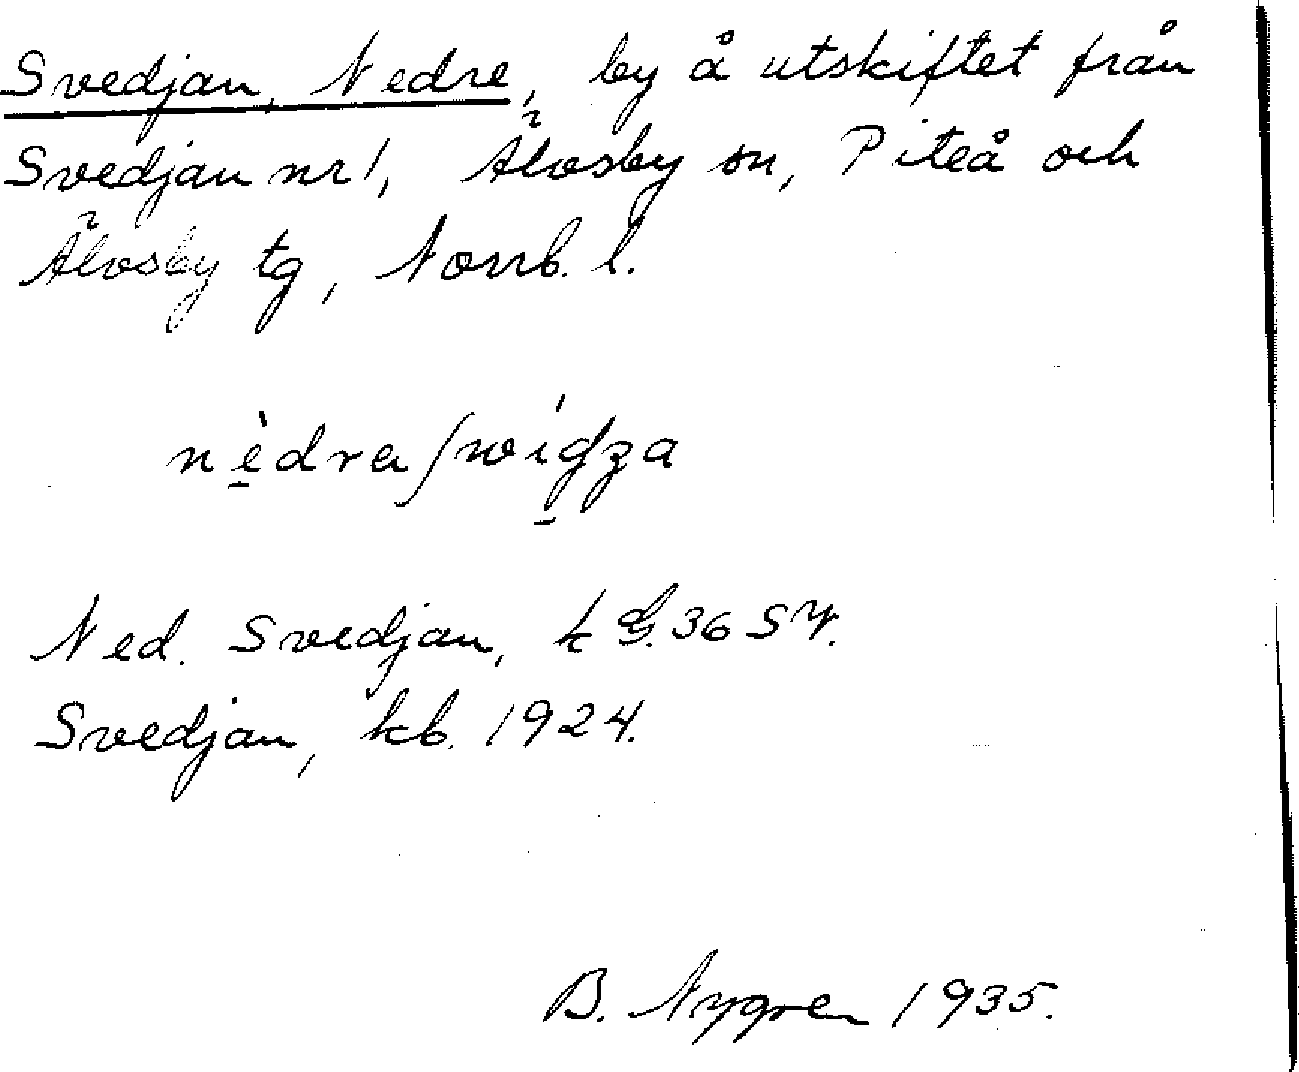 Svedjan, Nedre, by å utskiftet från
Svedjan nr 1, Älvsby sn, Piteå och
Älvsby tg, Norrb. l.
Ned. Svedjan, k G. 36 SV.
Svedjan, kb. 1924.
B. Nygren 1935.